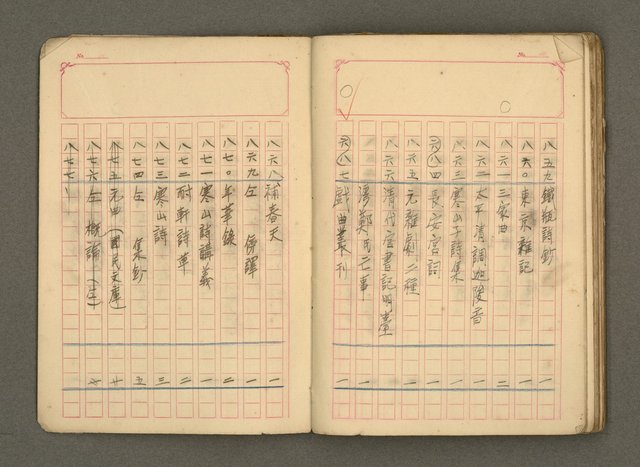 No.
八五九 鐵瓶詩鈔 一
八六〇 東京雜記 一
八六一 三家曲 二
八六二 太平清調迦陵音 一
八六三 寒山子詩集 一
八六四 長安宮詞 一
八六五 元雜劇二種 二
八六六 清代官書記明臺 一
灣鄭氏亡事 一
八六七 戲曲叢刊 一
No.
八六八 補春天 一
八六九 仝 傳譯 一
八七〇 年華錄 二
八七一 寒山詩講義 一
八七二 耐軒詩草 二
八七三 寒山詩 三
八七四 仝 集鈔 五
八七五 元曲（國民文庫） 十
八七六 仝 概論（仝） 七
八七七